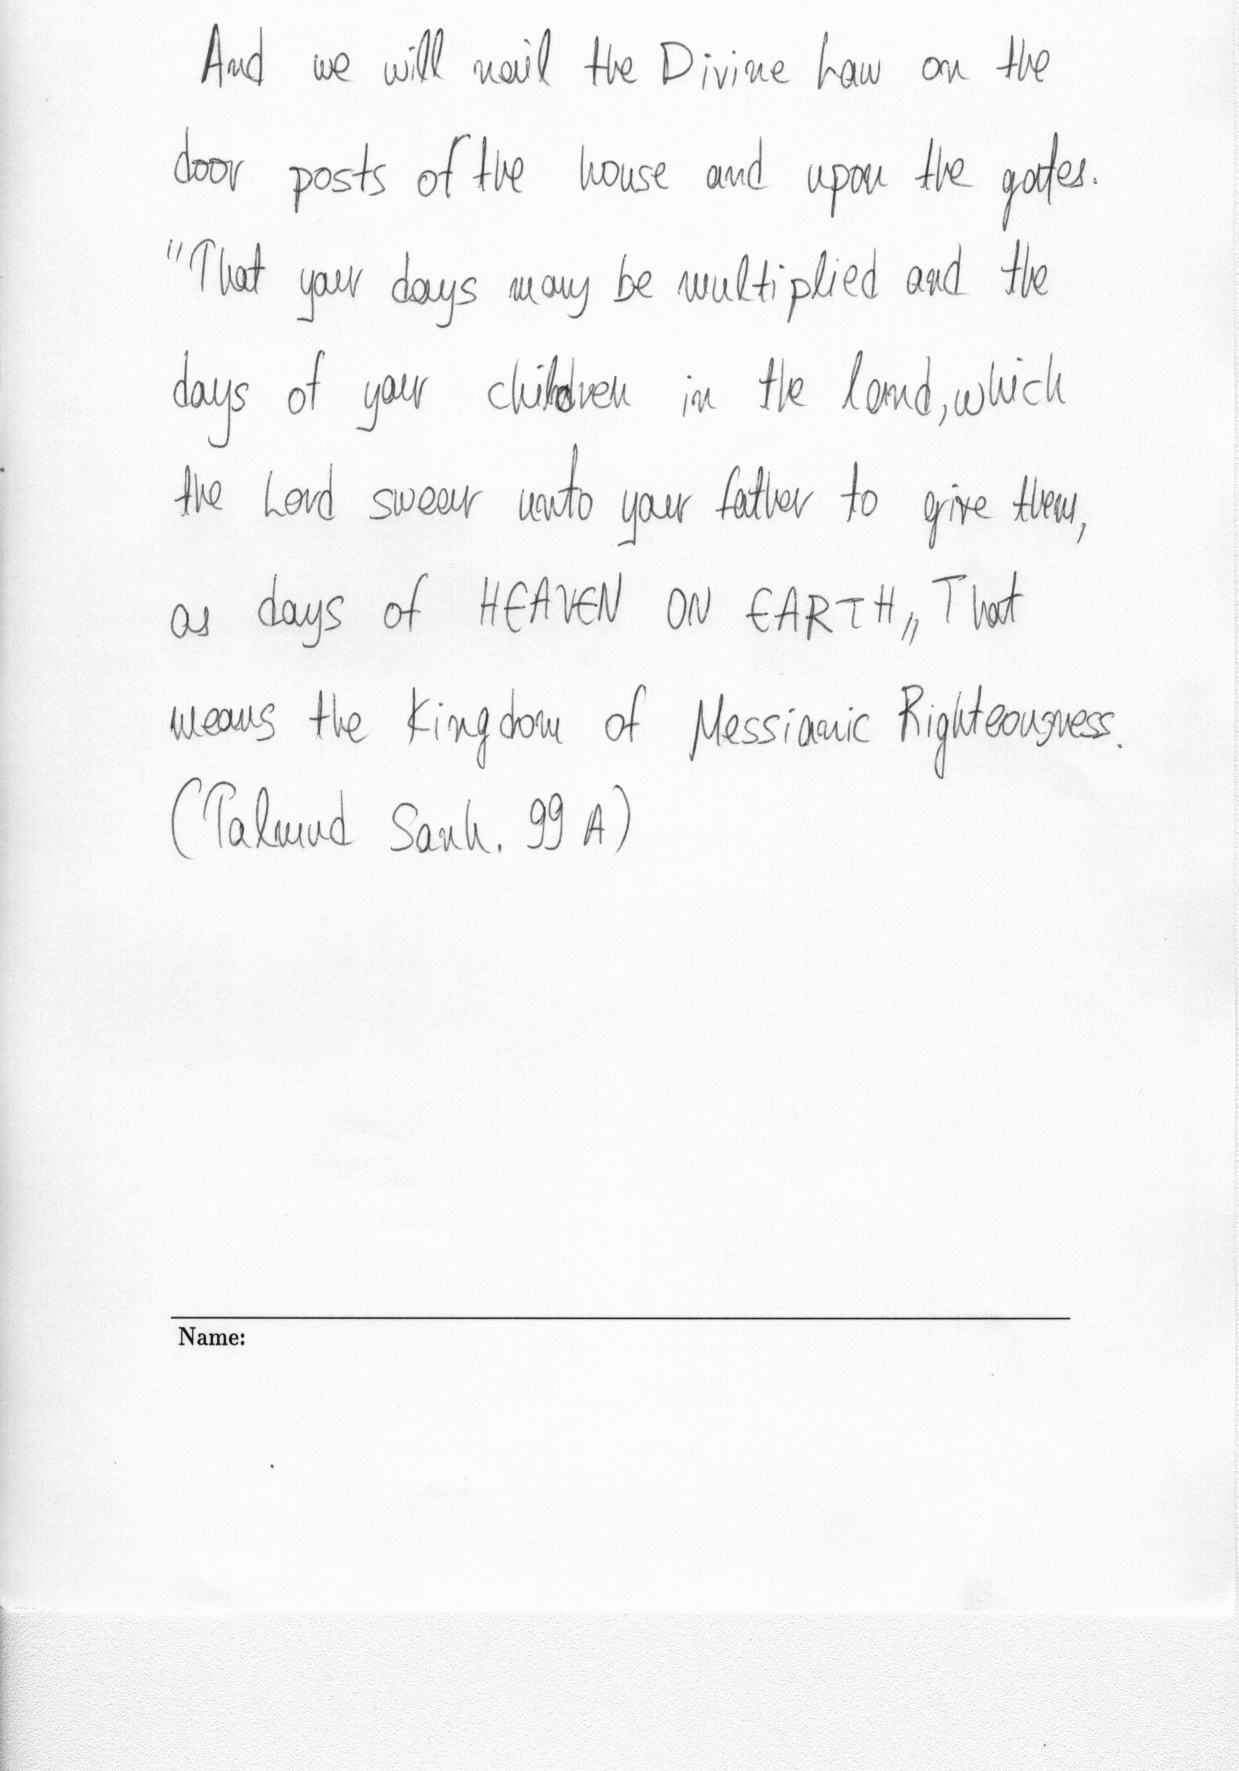 And we will nail the Divine Law on the
door posts of the house and upon the gates.
"That your days may be multiplied and the
days of your children in the land, which
the Lord swear unto your father to give them,
as days of HEAVEN ON EARTH,, That
means the Kingdom of Messianic Righteousness.
(Talmud Sanh. 99 A)
Name: